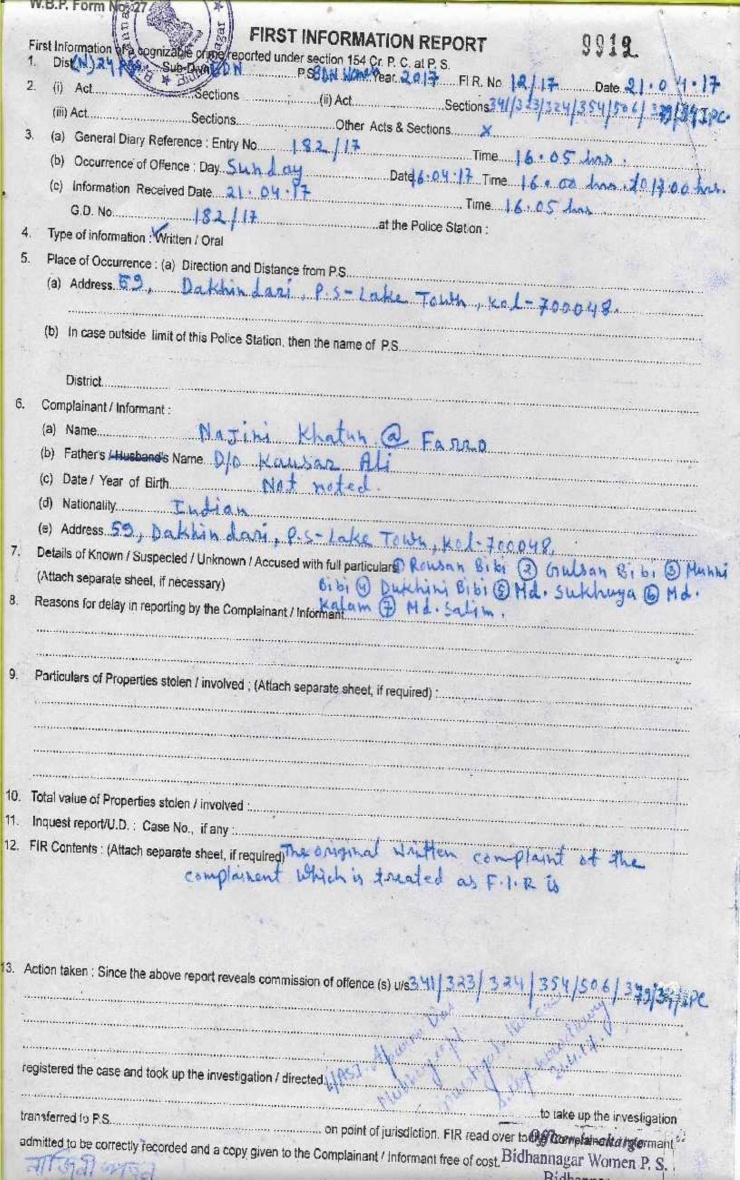 W.B.P. Form No. 27
FIRST INFORMATION REPORT
9912
First Information of a cognizable crime reported under section 154 Cr. P. C. at P. S.
1. Dist. (N) 24 PGS Sub-Divn. BDN P.S. BDN Women Year. 2017 F.I.R. No 12/17 Date 21.04.17
2. (i) Act Sections (ii) Act Sections 341/323/324/354/506/379/34 IPC.
(iii) Act Sections Other Acts & Sections x
3. (a) General Diary Reference : Entry No 182/17 Time 16.05 hrs.
(b) Occurrence of Offence : Day Sunday Date 16.04.17 Time 16.00 hrs. to 17.00 hrs.
(c) Information Received Date 21.04.17 Time 16.05 hrs
G.D. No. 182/17 at the Police Station :
4. Type of information : Written / Oral
5. Place of Occurrence : (a) Direction and Distance from P.S.
(a) Address 59, Dakhindari, P.S-Lake Town, Kol-700048.
(b) In case outside limit of this Police Station, then the name of P.S.
District
6. Complainant / Informant :
(a) Name Najini Khatun @ Farro
(b) Father's / Husband's Name D/o Kausar Ali
(c) Date / Year of Birth Not noted.
(d) Nationality Indian
(e) Address 59, Dakhindari, P.S-Lake Town, Kol-700048.
7. Details of Known / Suspected / Unknown / Accused with full particulars ① Rousan Bibi ② Gulsan Bibi ③ Munni
(Attach separate sheet, if necessary) Bibi ④ Dukhini Bibi ⑤ Md. Sukhuya ⑥ Md.
8. Reasons for delay in reporting by the Complainant / Informant Kalam ⑦ Md. Salim.
9. Particulars of Properties stolen / involved ; (Attach separate sheet, if required) :
10. Total value of Properties stolen / involved :
11. Inquest report/U.D. : Case No., if any :
12. FIR Contents : (Attach separate sheet, if required) The original written complaint of the
complainent which is treated as F.I.R is
13. Action taken : Since the above report reveals commission of offence (s) u/s 341/323/324/354/506/379/34 IPC
registered the case and took up the investigation / directed L/ASI Aparna Das
to take up the investigation
transferred to P.S. on point of jurisdiction. FIR read over to the Complainant / Informant
Officer-in-charge
admitted to be correctly recorded and a copy given to the Complainant / Informant free of cost.
Bidhannagar Women P. S.